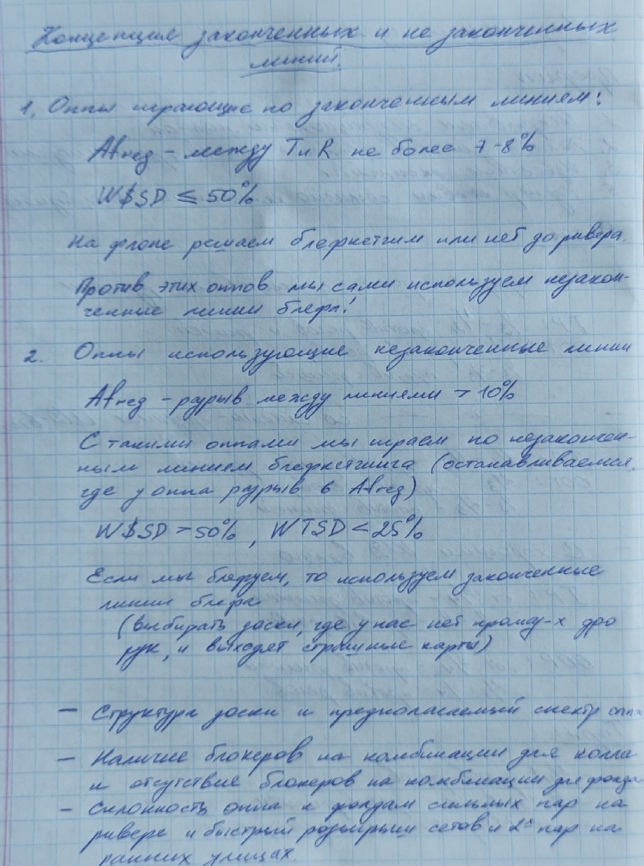 Концепция законченных и не законченных
линий.
1. Оппы играющие по законченным линиям:
Afreq – между T и R не более 7-8%
W$SD ≤ 50%
На флопе решаем блефкетчим или нет до ривера.
Против этих оппов мы сами используем незакон-
ченные линии блефы!
2. Оппы использующие незаконченные линии
Afreq – разрыв между линиями > 10%
С такими оппами мы играем по незакончен-
ным линиям блефкетчинга (останавливаемся,
где у оппа разрыв в Afreq)
W$SD > 50%, WTSD < 25%
Если мы блефуем, то используем законченные
линии блефа
(выбирать доски, где у нас нет промеж-х дро
рук, и выходят страшные карты)
– Структура доски и предполагаемый спектр оппа
– Наличие блокеров на комбинации для колла
и отсутствие блокеров на комбинации для фолда
– Склонность оппа к фолдам сильных пар на
ривере и быстрый розыгрыш сетов и 2х пар на
ранних улицах.